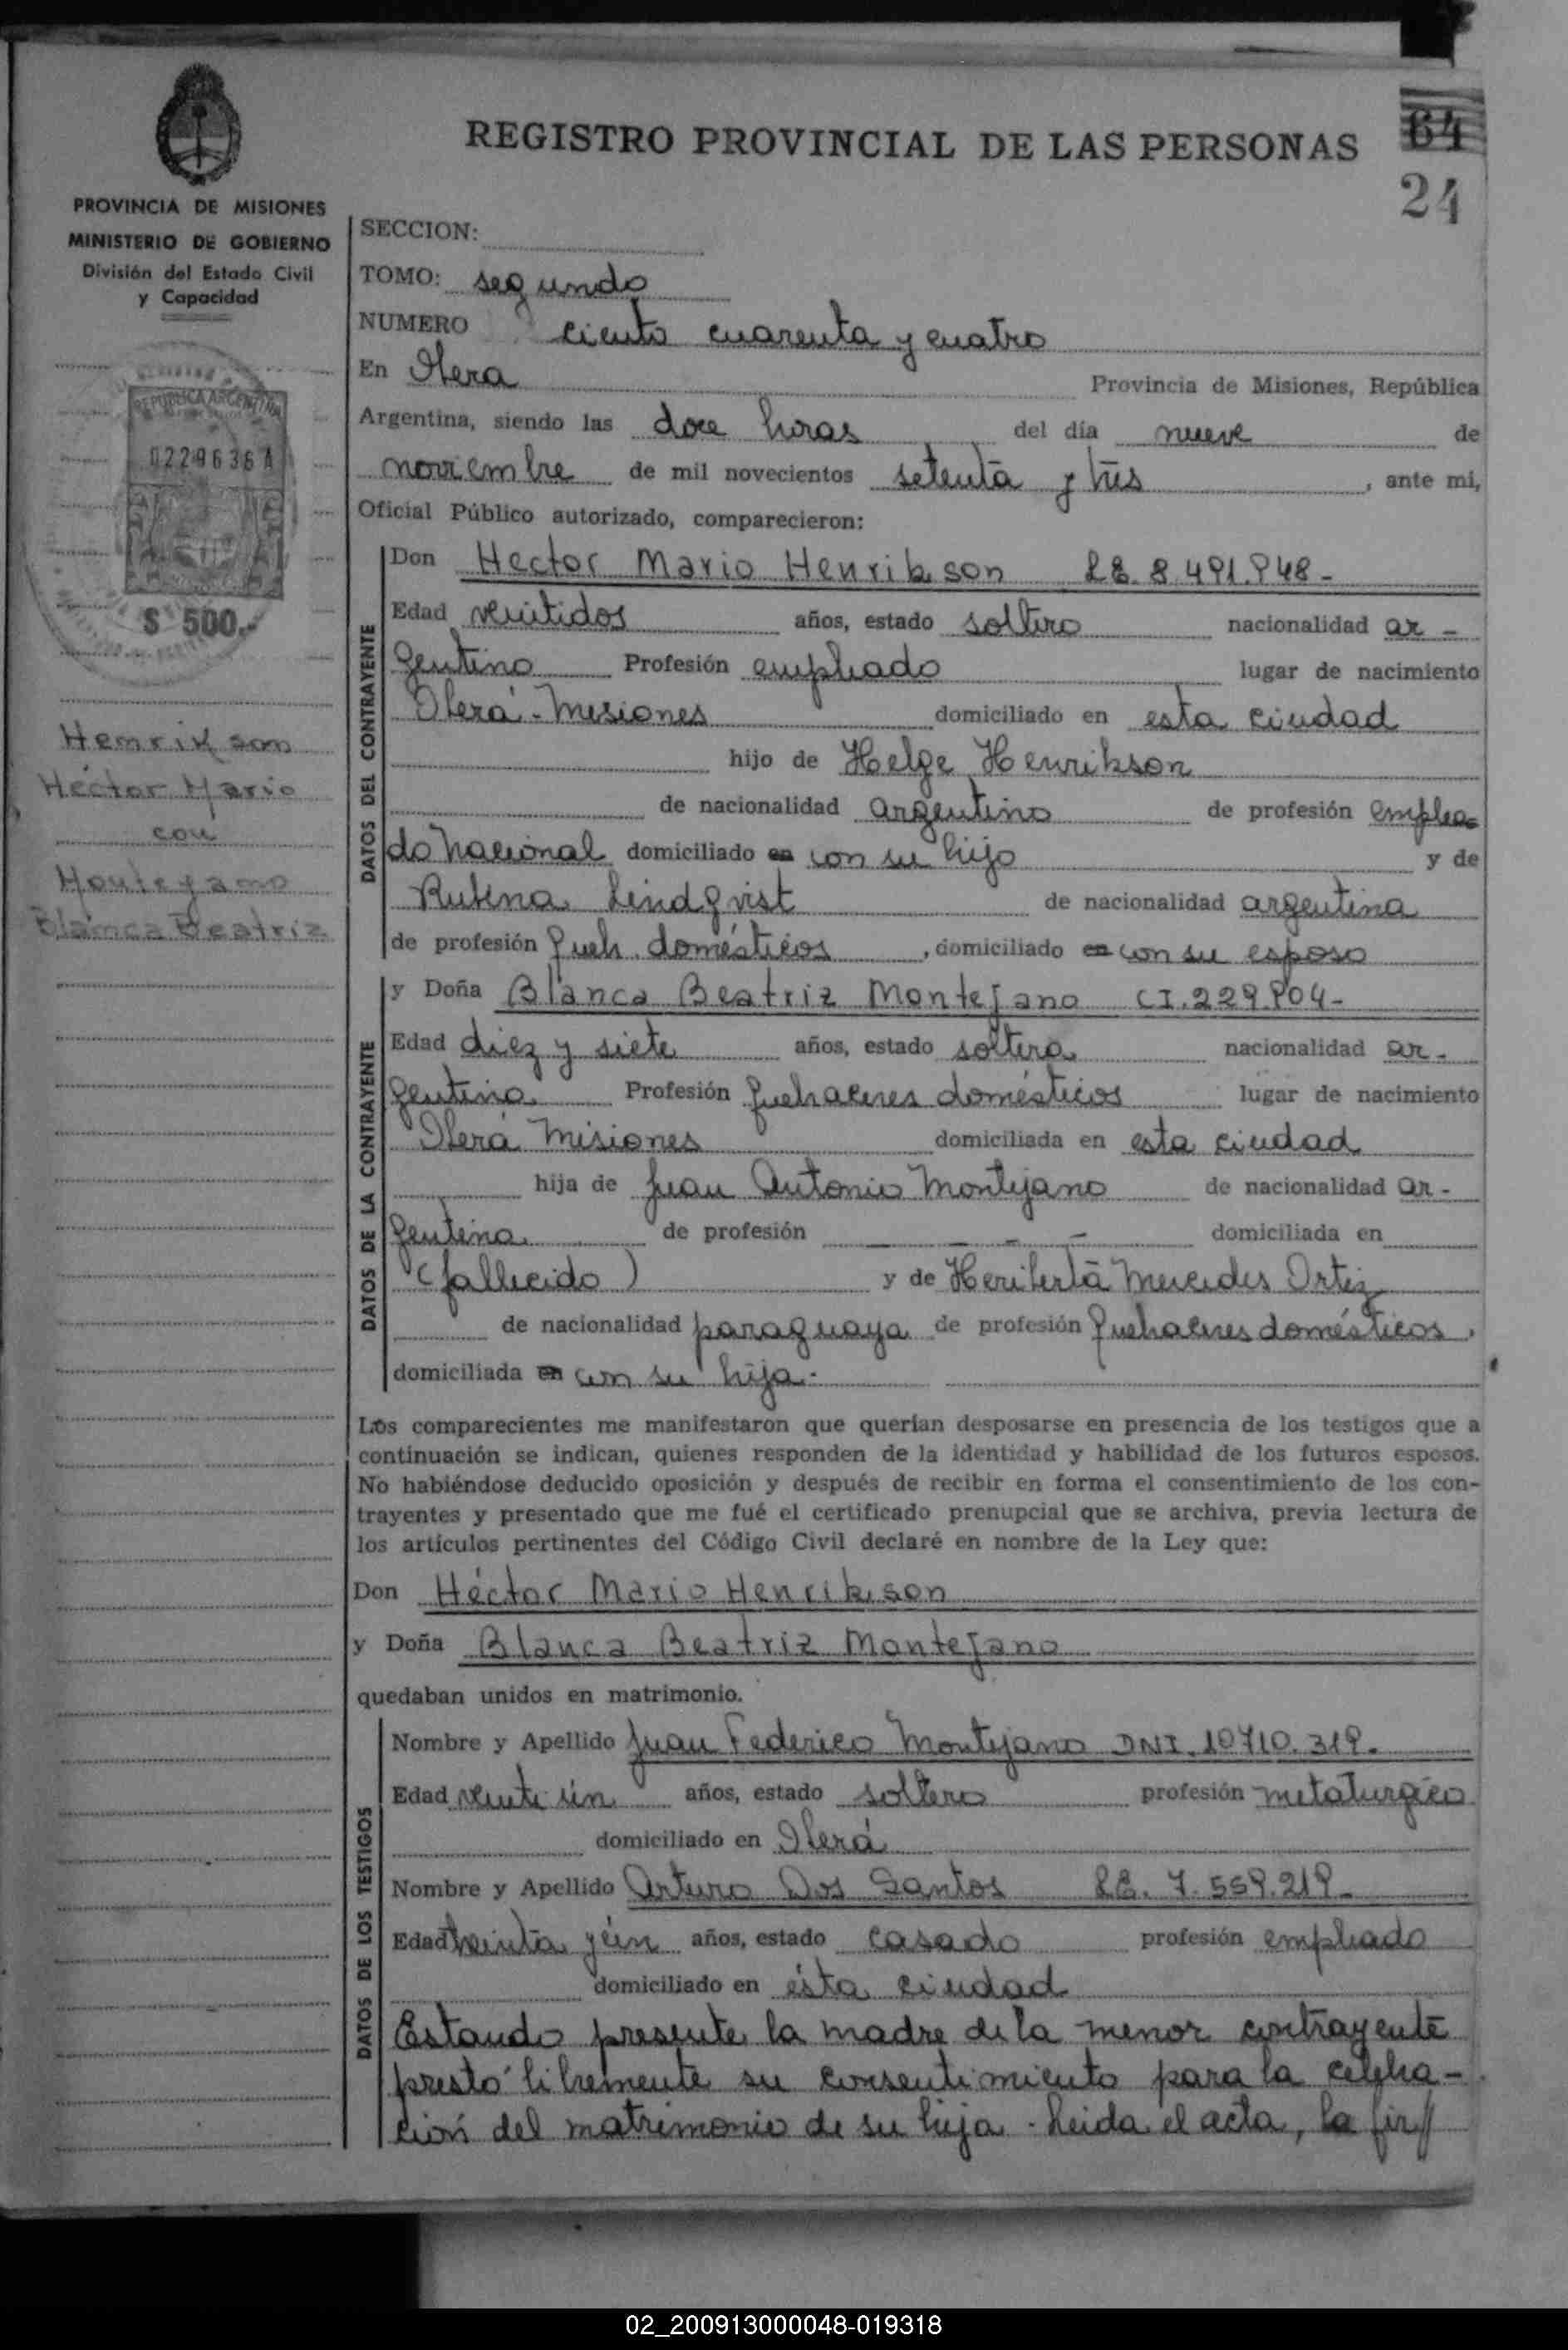 REGISTRO PROVINCIAL DE LAS PERSONAS
64
24
PROVINCIA DE MISIONES
MINISTERIO DE GOBIERNO
División del Estado Civil
y Capacidad
REPUBLICA ARGENTINA
0229636A
$ 500.-
Henrikson
Héctor Mario
con
Monteyano
Blanca Beatriz
SECCION:
TOMO: segundo
NUMERO ciento cuarenta y cuatro
En Oberá Provincia de Misiones, República
Argentina, siendo las doce horas del día nueve de
noviembre de mil novecientos setenta y tres, ante mi,
Oficial Público autorizado, comparecieron:
DATOS DEL CONTRAYENTE
Don Hector Mario Henrikson L.E. 8.491.948-
Edad veintidos años, estado soltero nacionalidad ar-
gentino Profesión empleado lugar de nacimiento
Oberá-Misiones domiciliado en esta ciudad
hijo de Helge Henrikson
de nacionalidad argentino de profesión emplea
do nacional domiciliado en con su hijo y de
Rubena Lindqvist de nacionalidad argentina
de profesión queh. domésticos, domiciliado en con su esposo
DATOS DE LA CONTRAYENTE
y Doña Blanca Beatriz Montejano C.I. 229.904-
Edad diez y siete años, estado soltera nacionalidad ar-
gentina Profesión quehaceres domésticos lugar de nacimiento
Oberá Misiones domiciliada en esta ciudad
hija de Juan Antonio Montejano de nacionalidad ar-
gentina de profesión - - - domiciliada en
(fallecido) y de Heriberta Mercedes Ortiz
de nacionalidad paraguaya de profesión quehaceres domésticos,
domiciliada en con su hija.-
Los comparecientes me manifestaron que querían desposarse en presencia de los testigos que a
continuación se indican, quienes responden de la identidad y habilidad de los futuros esposos.
No habiéndose deducido oposición y después de recibir en forma el consentimiento de los con-
trayentes y presentado que me fué el certificado prenupcial que se archiva, previa lectura de
los artículos pertinentes del Código Civil declaré en nombre de la Ley que:
Don Héctor Mario Henrikson
y Doña Blanca Beatriz Montejano
quedaban unidos en matrimonio.
DATOS DE LOS TESTIGOS
Nombre y Apellido Juan Federico Montejano DNI. 10710.319.
Edad veinte ún años, estado soltero profesión metalurgico
domiciliado en Oberá
Nombre y Apellido Arturo Dos Santos L.E. 7.559.219-
Edad treinta y ún años, estado casado profesión empleado
domiciliado en ésta ciudad
Estando presente la madre de la menor contrayente
prestó libremente su consentimiento para la celebra-
ción del matrimonio de su hija. Leida el acta, la fir//
02_200913000048-019318